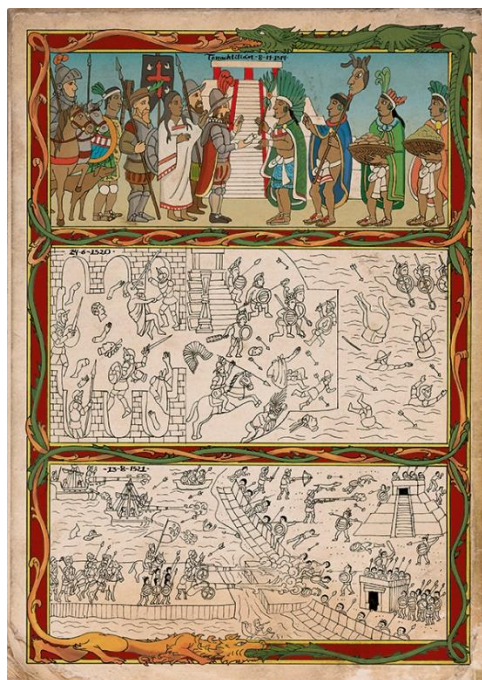 Tenochtitlan-8-11-1519-
24-6-1520-
-13-8-1521-